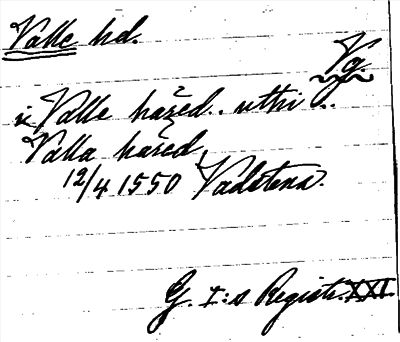 Valle hd.
Vg.
i Valle hazed.. uthi..
Valla hazed,
12/4 1550 Vadstena.
G. I:s Registr. XXI.